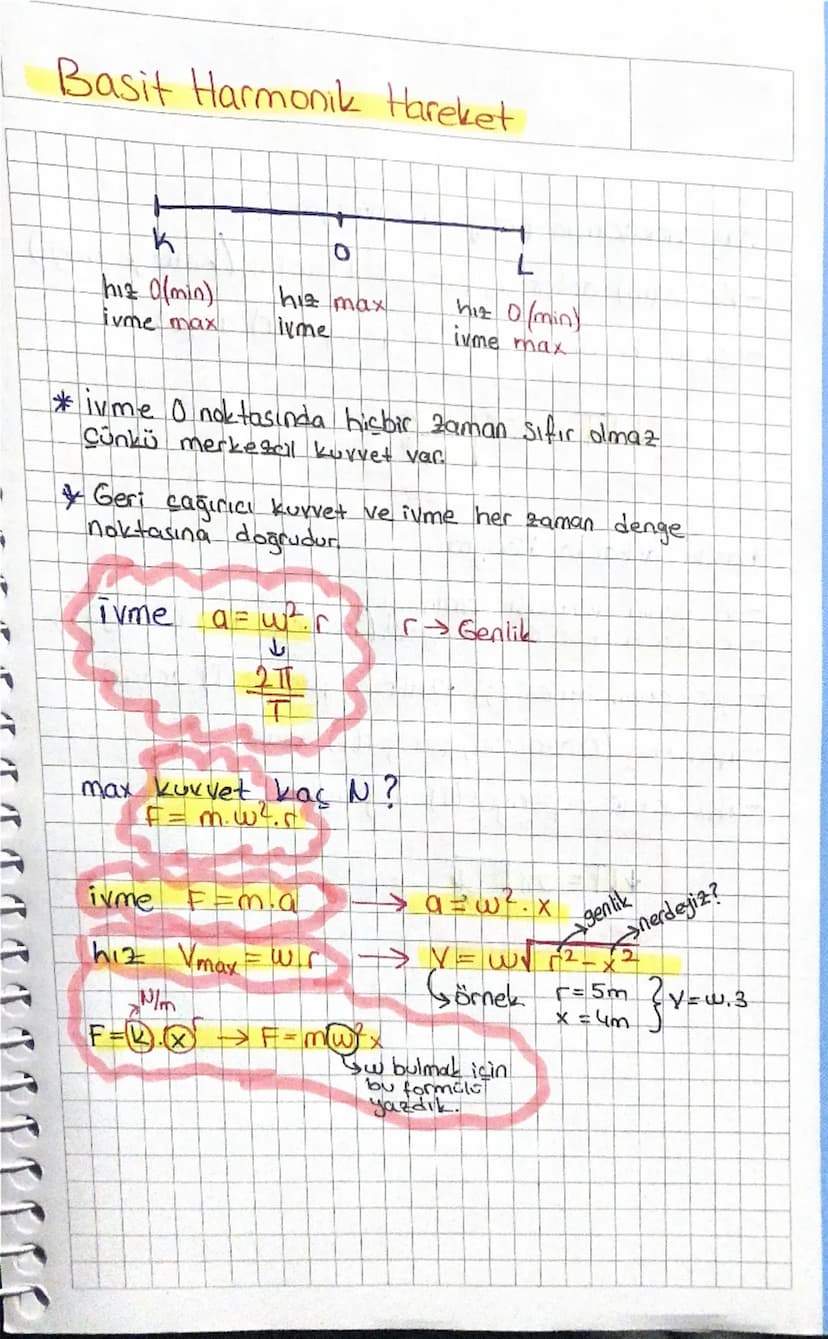 Basit Harmonik Hareket
K O L
hız 0(min) hız max hız 0(min)
ivme max ivme ivme max
* ivme O noktasında hiçbir zaman sıfır olmaz
Çünkü merkezcil kuvvet var.
* Geri çağırıcı kuvvet ve ivme her zaman denge
noktasına doğrudur.
İvme a = w².r r → Genlik
↓
2π
T
max kuvvet kaç N?
F = m.w².r
ivme F = m.a → a = w².x
genlik nerdeyiz?
hız Vmax = w.r → V = w√r²-x²
örnek r = 5m
x = 4m } V = w.3
N/m
F = k.x → F = mw²x
w bulmak için
bu formülü
yazdık.